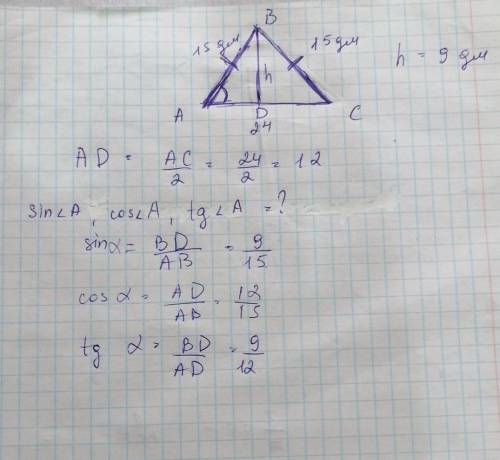 B
15 дм 15 дм h = 9 дм
h
A D C
24
AD = AC/2 = 24/2 = 12
sin∠A, cos∠A, tg∠A = ?
sinα = BD/AB = 9/15
cos α = AD/AB = 12/15
tg α = BD/AD = 9/12